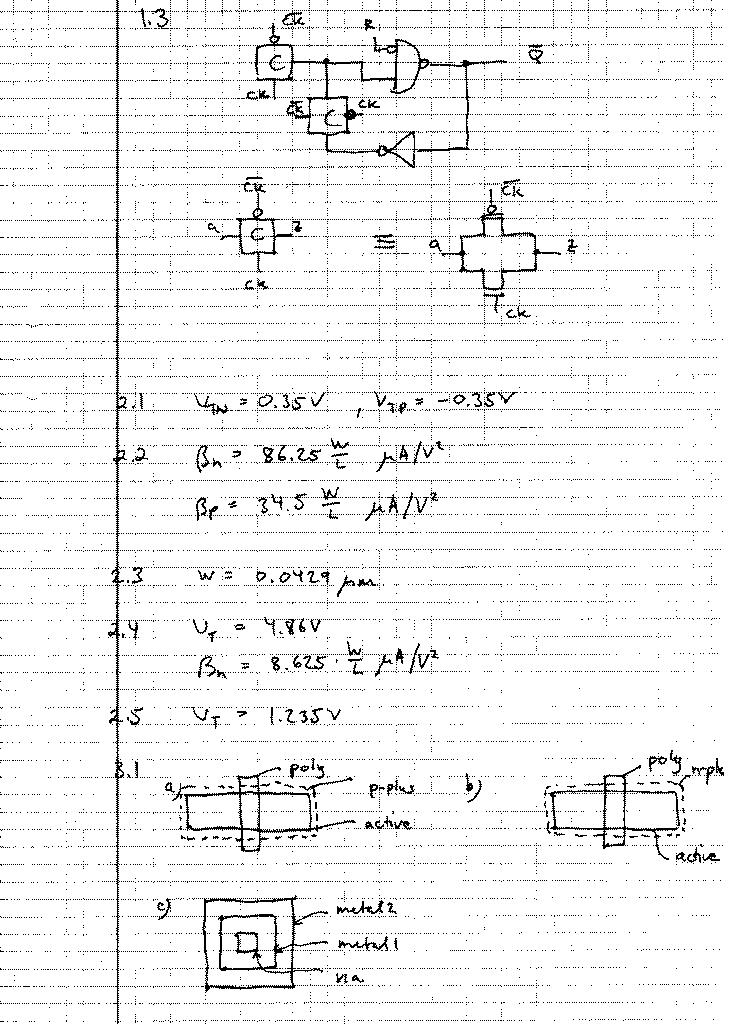 1.3
C̅K̅
R
C
Q̅
CK
C̅K̅ C CK
C̅K̅ C̅K̅
a C z ≡ a z
CK CK
2.1 V_TN = 0.35V , V_TP = -0.35V
2.2 βn = 86.25 W/L μA/V²
βp = 34.5 W/L μA/V²
2.3 W = 0.0429 μm
2.4 V_T = 4.86V
βn = 8.625 · W/L μA/V²
2.5 V_T = 1.235V
3.1
a) poly b) poly
p-plus
active active
c) metal2
metal1
via